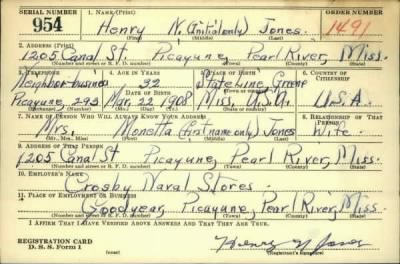 SERIAL NUMBER 1. NAME (Print) ORDER NUMBER
954 Henry N. (initial only) Jones. 1491
(First) (Middle) (Last)
2. ADDRESS (Print)
1205 Canal St. Picayune, Pearl River, Miss.
(Number and street or R. F. D. number) (Town) (County) (State)
3. TELEPHONE 4. AGE IN YEARS 5. PLACE OF BIRTH 6. COUNTRY OF CITIZENSHIP
Neighbor-business 32 State Line, Greene
DATE OF BIRTH
Picayune, 293 Mar. 22 1908 Miss. U.S.A. U.S.A.
(Exchange) (Number) (Mo.) (Day) (Yr.) (State or country)
7. NAME OF PERSON WHO WILL ALWAYS KNOW YOUR ADDRESS 8. RELATIONSHIP OF THAT PERSON
Mrs. (first name only) Jones Wife.
(Mr., Mrs., Miss) (First) (Middle) (Last)
9. ADDRESS OF THAT PERSON
1205 Canal St Picayune, Pearl River, Miss.
(Number and street or R. F. D. number) (Town) (County) (State)
10. EMPLOYER'S NAME
Crosby Naval Stores.
11. PLACE OF EMPLOYMENT OR BUSINESS
Goodyear, Picayune, Pearl River, Miss.
(Number and street or R. F. D. number) (Town) (County) (State)
I AFFIRM THAT I HAVE VERIFIED ABOVE ANSWERS AND THAT THEY ARE TRUE.
REGISTRATION CARD
D. S. S. FORM 1 (over) Henry N Jones
(Registrant's signature)